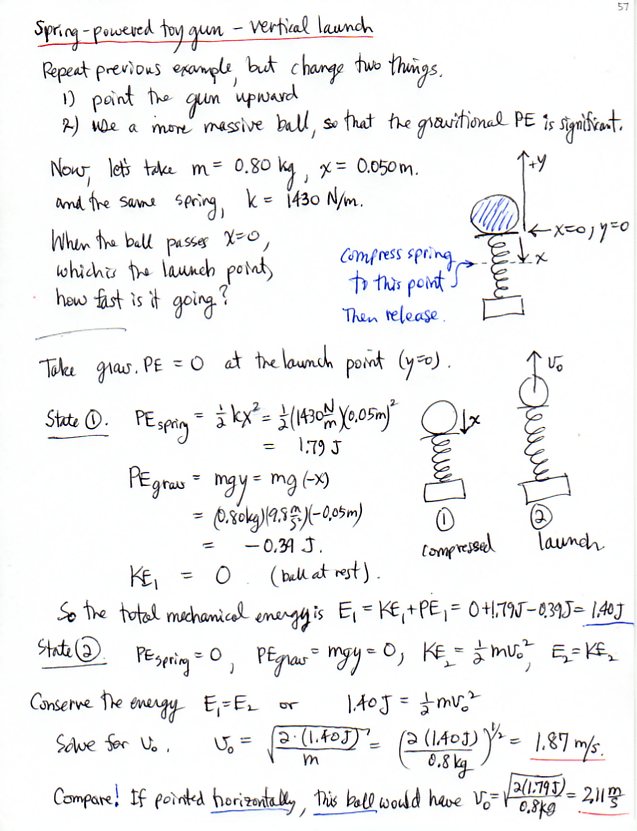 57
Spring-powered toy gun – vertical launch
Repeat previous example, but change two things.
1) point the gun upward
2) use a more massive ball, so that the gravitional PE is significant.
Now, let's take m = 0.80 kg, x = 0.050 m.
and the same spring, k = 1430 N/m.
When the ball passes x=0,
which is the launch point,
how fast is it going?
+y
← x=0, y=0
x
compress spring
to this point
Then release.
Take grav. PE = 0 at the launch point (y=0).
State ①. PE_spring = ½ kx² = ½ (1430 N/m)(0.05m)²
= 1.79 J
PE_grav = mgy = mg(-x)
= (0.80kg)(9.8 m/s²)(-0.05m)
= -0.39 J.
KE₁ = 0 (ball at rest).
x
① compressed
v₀
② launch
So the total mechanical energy is E₁ = KE₁+PE₁ = 0+1.79J-0.39J = 1.40J
State ② PE_spring = 0, PE_grav = mgy = 0, KE₂ = ½ mv₀², E₂ = KE₂
Conserve the energy E₁=E₂ or 1.40J = ½ mv₀²
Solve for v₀. v₀ = √(2·(1.40J)/m) = (2(1.40J)/0.8kg)^1/2 = 1.87 m/s.
Compare! If pointed horizontally, this ball would have v₀ = √(2(1.79J)/0.8kg) = 2.11 m/s